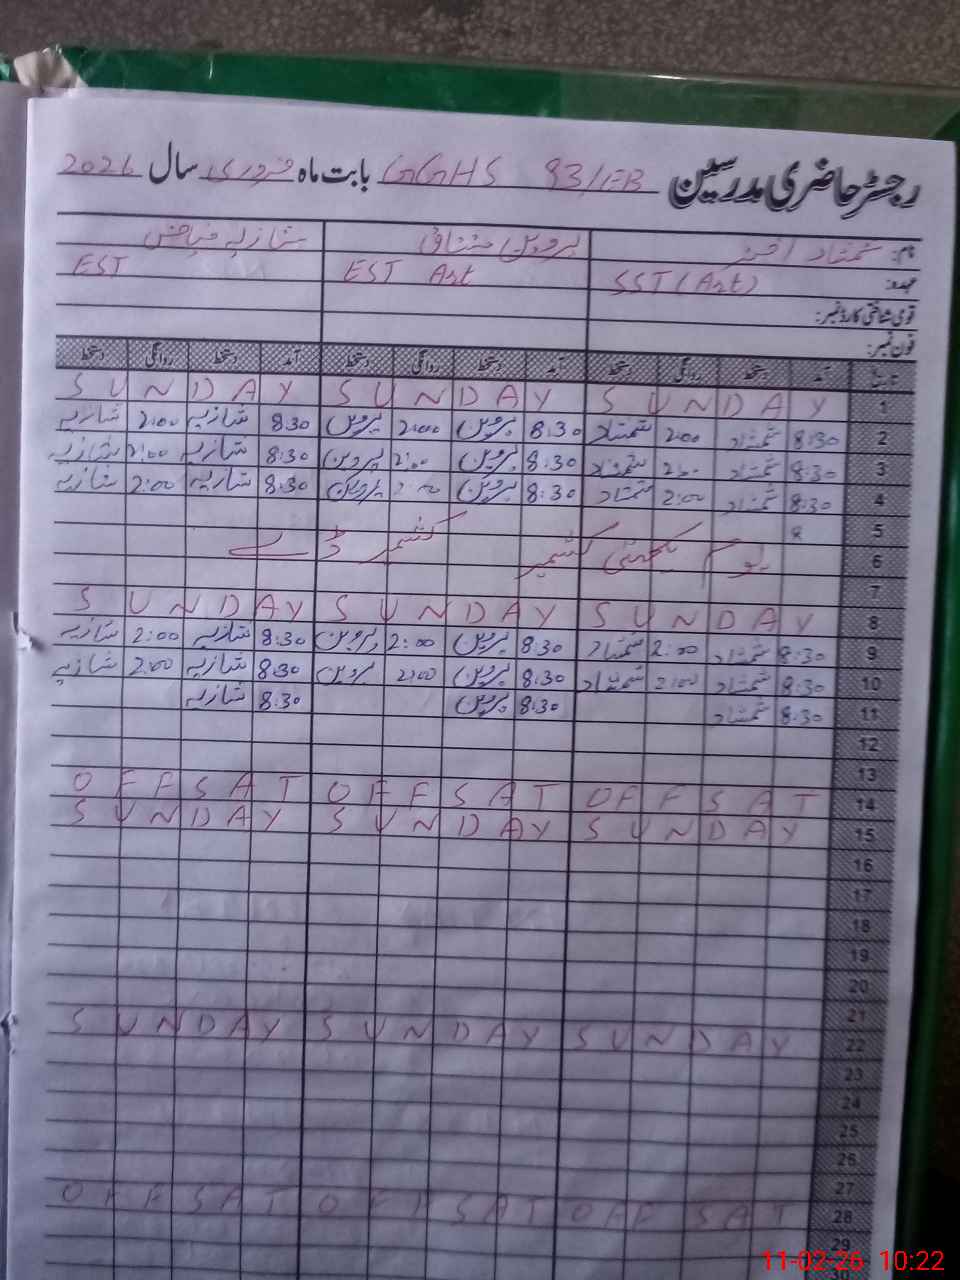 رجسٹر حاضری مدرسین GGHS 93/EB بابت ماہ فروری سال 2026
نام: شمشاد اختر پروین مشتاق شازیہ فیاض
عہدہ: SST (Art) EST Art EST
قومی شناختی کارڈ نمبر:
فون نمبر:
تاریخ آمد دستخط روانگی دستخط آمد دستخط روانگی دستخط آمد دستخط روانگی دستخط
1 SUNDAY SUNDAY SUNDAY
2 8:30 شمشاد 2:00 شمشاد 8:30 پروین 2:00 پروین 8:30 شازیہ 2:00 شازیہ
3 8:30 شمشاد 2:00 شمشاد 8:30 پروین 2:00 پروین 8:30 شازیہ 2:00 شازیہ
4 8:30 شمشاد 2:00 شمشاد 8:30 پروین 2:00 پروین 8:30 شازیہ 2:00 شازیہ
5 8 یوم یکجہتی کشمیر کشمیر ڈے
6
7
8 SUNDAY SUNDAY SUNDAY
9 8:30 شمشاد 2:00 شمشاد 8:30 پروین 2:00 پروین 8:30 شازیہ 2:00 شازیہ
10 8:30 شمشاد 2:00 شمشاد 8:30 پروین 2:00 پروین 8:30 شازیہ 2:00 شازیہ
11 8:30 شمشاد 8:30 پروین 8:30 شازیہ
12
13
14 OFF SAT OFF SAT OFF SAT
15 SUNDAY SUNDAY SUNDAY
16
17
18
19
20
21
22 SUNDAY SUNDAY SUNDAY
23
24
25
26
27
28 OFF SAT OFF SAT OFF SAT
29
30
11-02-26 10:22